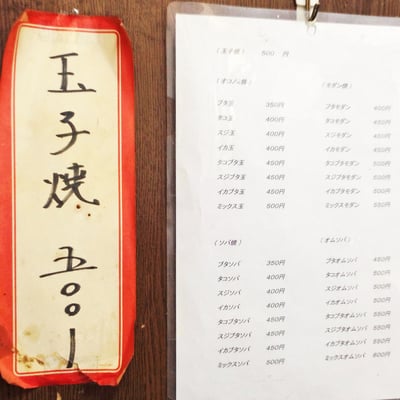 玉子焼 五〇〇
(玉子焼) 500 円
(オコノミ焼)
ブタ玉 350円
タコ玉 400円
スジ玉 400円
イカ玉 400円
タコブタ玉 450円
スジブタ玉 450円
イカブタ玉 450円
ミックス玉 500円
(モダン焼)
ブタモダン 400円
タコモダン 450円
スジモダン 450円
イカモダン 450円
タコブタモダン 500円
スジブタモダン 500円
イカブタモダン 500円
ミックスモダン 550円
(ソバ焼)
ブタソバ 350円
タコソバ 400円
スジソバ 400円
イカソバ 400円
タコブタソバ 450円
スジブタソバ 450円
イカブタソバ 450円
ミックスソバ 500円
(オムソバ)
ブタオムソバ 450円
タコオムソバ 500円
スジオムソバ 500円
イカオムソバ 500円
タコブタオムソバ 550円
スジブタオムソバ 550円
イカブタオムソバ 550円
ミックスオムソバ 600円